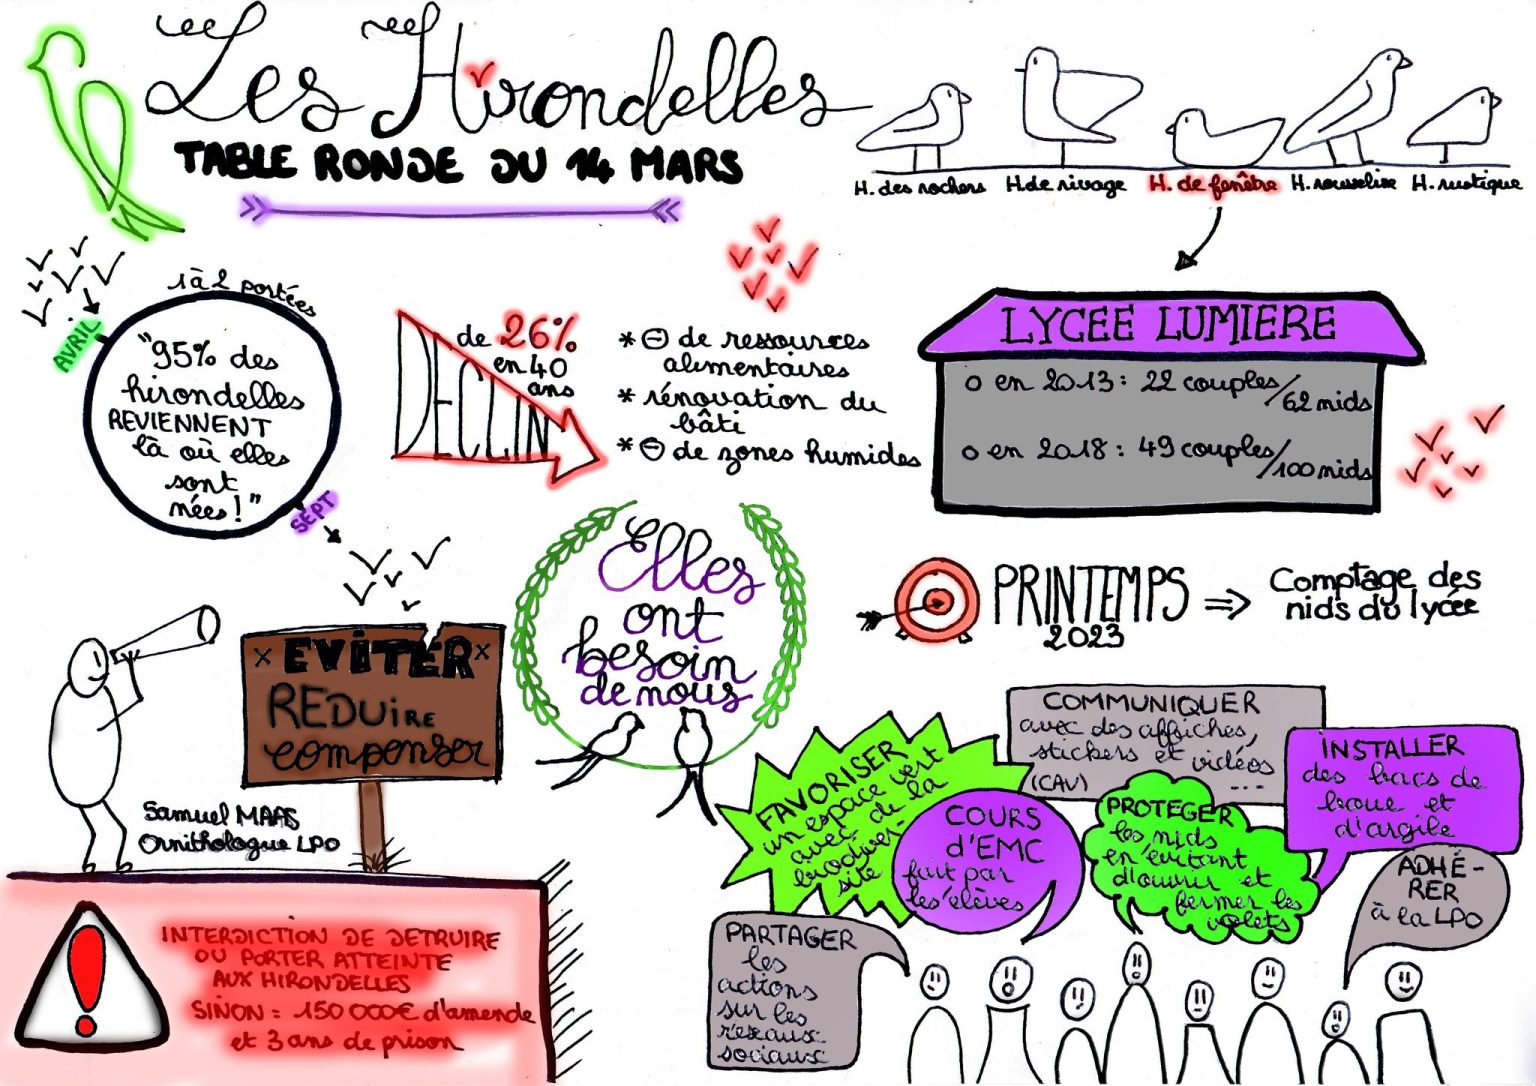 Les Hirondelles
TABLE RONDE DU 14 MARS
H. des rochers
H. de rivage
H. de fenêtre
H. rousseline
H. rustique
1 à 2 portées
AVRIL
"95% des
hirondelles
REVIENNENT
là où elles
sont
nées!"
SEPT
DECLIN
de 26%
en 40
ans
* ⊖ de ressources
alimentaires
* rénovation du
bâti
* ⊖ de zones humides
LYCEE LUMIERE
o en 2013 : 22 couples/62 nids
o en 2018 : 49 couples/100 nids
Elles
ont
besoin
de nous
PRINTEMPS
2023
⇒
Comptage des
nids du lycée
x EVITER x
REDUIRE
compenser
Samuel MAAS
Ornithologue LPO
INTERDICTION DE DETRUIRE
OU PORTER ATTEINTE
AUX HIRONDELLES
SINON : 150 000€ d'amende
et 3 ans de prison
!
FAVORISER
un espace vert
avec de la
biodiver-
sité
COURS
d'EMC
fait par
les élèves
COMMUNIQUER
avec des affiches,
stickers et vidéos
(CAV) ...
PROTEGER
les nids
en évitant
d'ouvrir et
fermer les
volets
INSTALLER
des bacs de
boue et
d'argile
ADHÉ-
RER
à la LPO
PARTAGER
les
actions
sur les
réseaux
sociaux